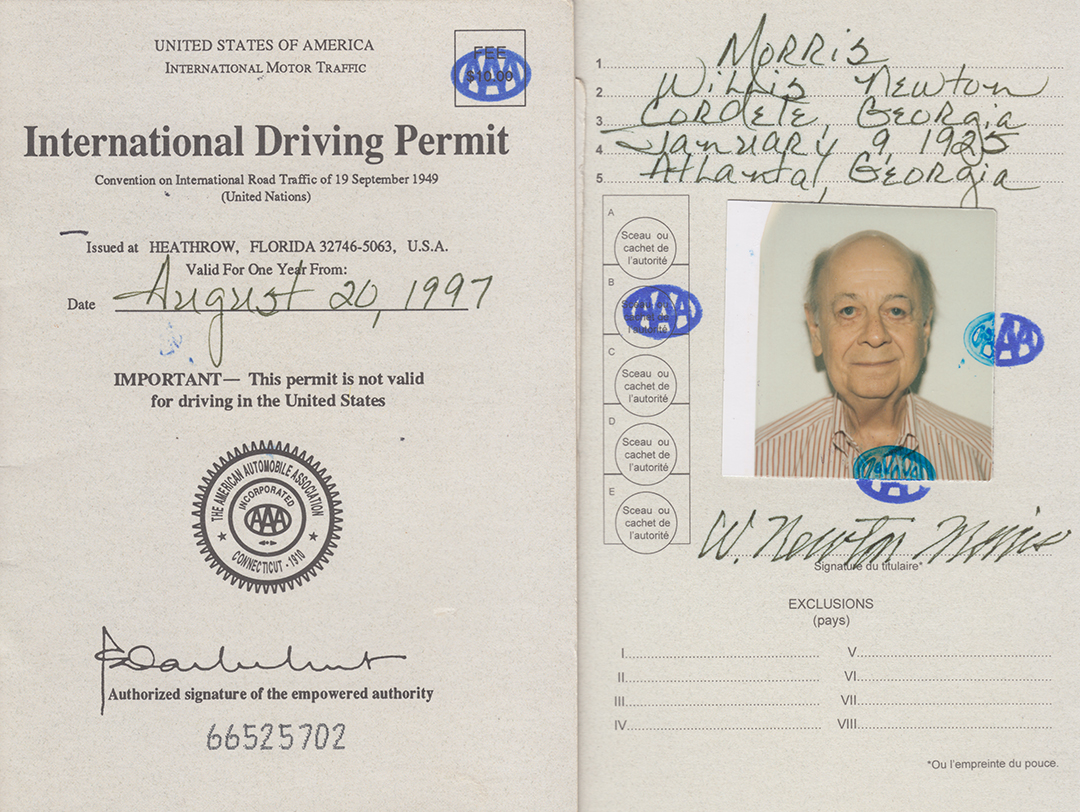 UNITED STATES OF AMERICA
INTERNATIONAL MOTOR TRAFFIC
FEE
$10.00
AAA
International Driving Permit
Convention on International Road Traffic of 19 September 1949
(United Nations)
Issued at HEATHROW, FLORIDA 32746-5063, U.S.A.
Valid For One Year From:
Date August 20, 1997
IMPORTANT— This permit is not valid
for driving in the United States
THE AMERICAN AUTOMOBILE ASSOCIATION
INCORPORATED
AAA
CONNECTICUT - 1910
Authorized signature of the empowered authority
66525702
1 MORRIS
2 Willis Newton
3 CORDELE, GEORGIA
4 January 9, 1925
5 Atlanta, Georgia
A
Sceau ou
cachet de
l'autorité
B
AAA
Sceau ou
cachet de
l'autorité
C
Sceau ou
cachet de
l'autorité
D
Sceau ou
cachet de
l'autorité
E
Sceau ou
cachet de
l'autorité
AAA
AAA
W. Newton Morris
Signature du titulaire*
EXCLUSIONS
(pays)
I V
II VI
III VII
IV VIII
*Ou l'empreinte du pouce.